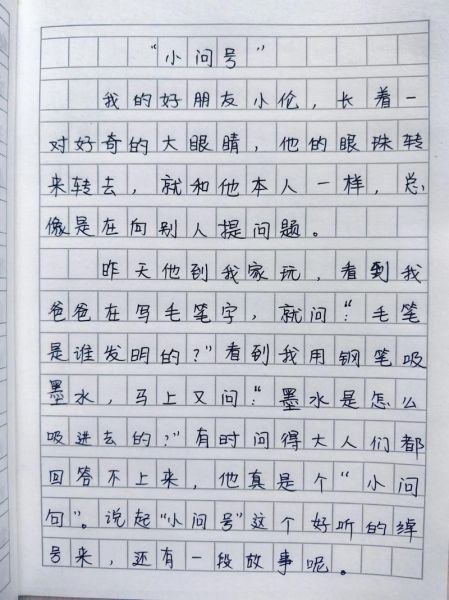 “小问号”
我的好朋友小伦，长着一
对好奇的大眼睛，他的眼珠转
来转去，就和他本人一样，总
像是在向别人提问题。
昨天他到我家玩，看到我
爸爸在写毛笔字，就问：“毛笔
是谁发明的？”看到我用钢笔吸
墨水，马上又问：“墨水是怎么
吸进去的？”有时问得大人们都
回答不上来，他真是个“小问
句”。说起“小问号”这个好听的绰
号来，还有一段故事呢。